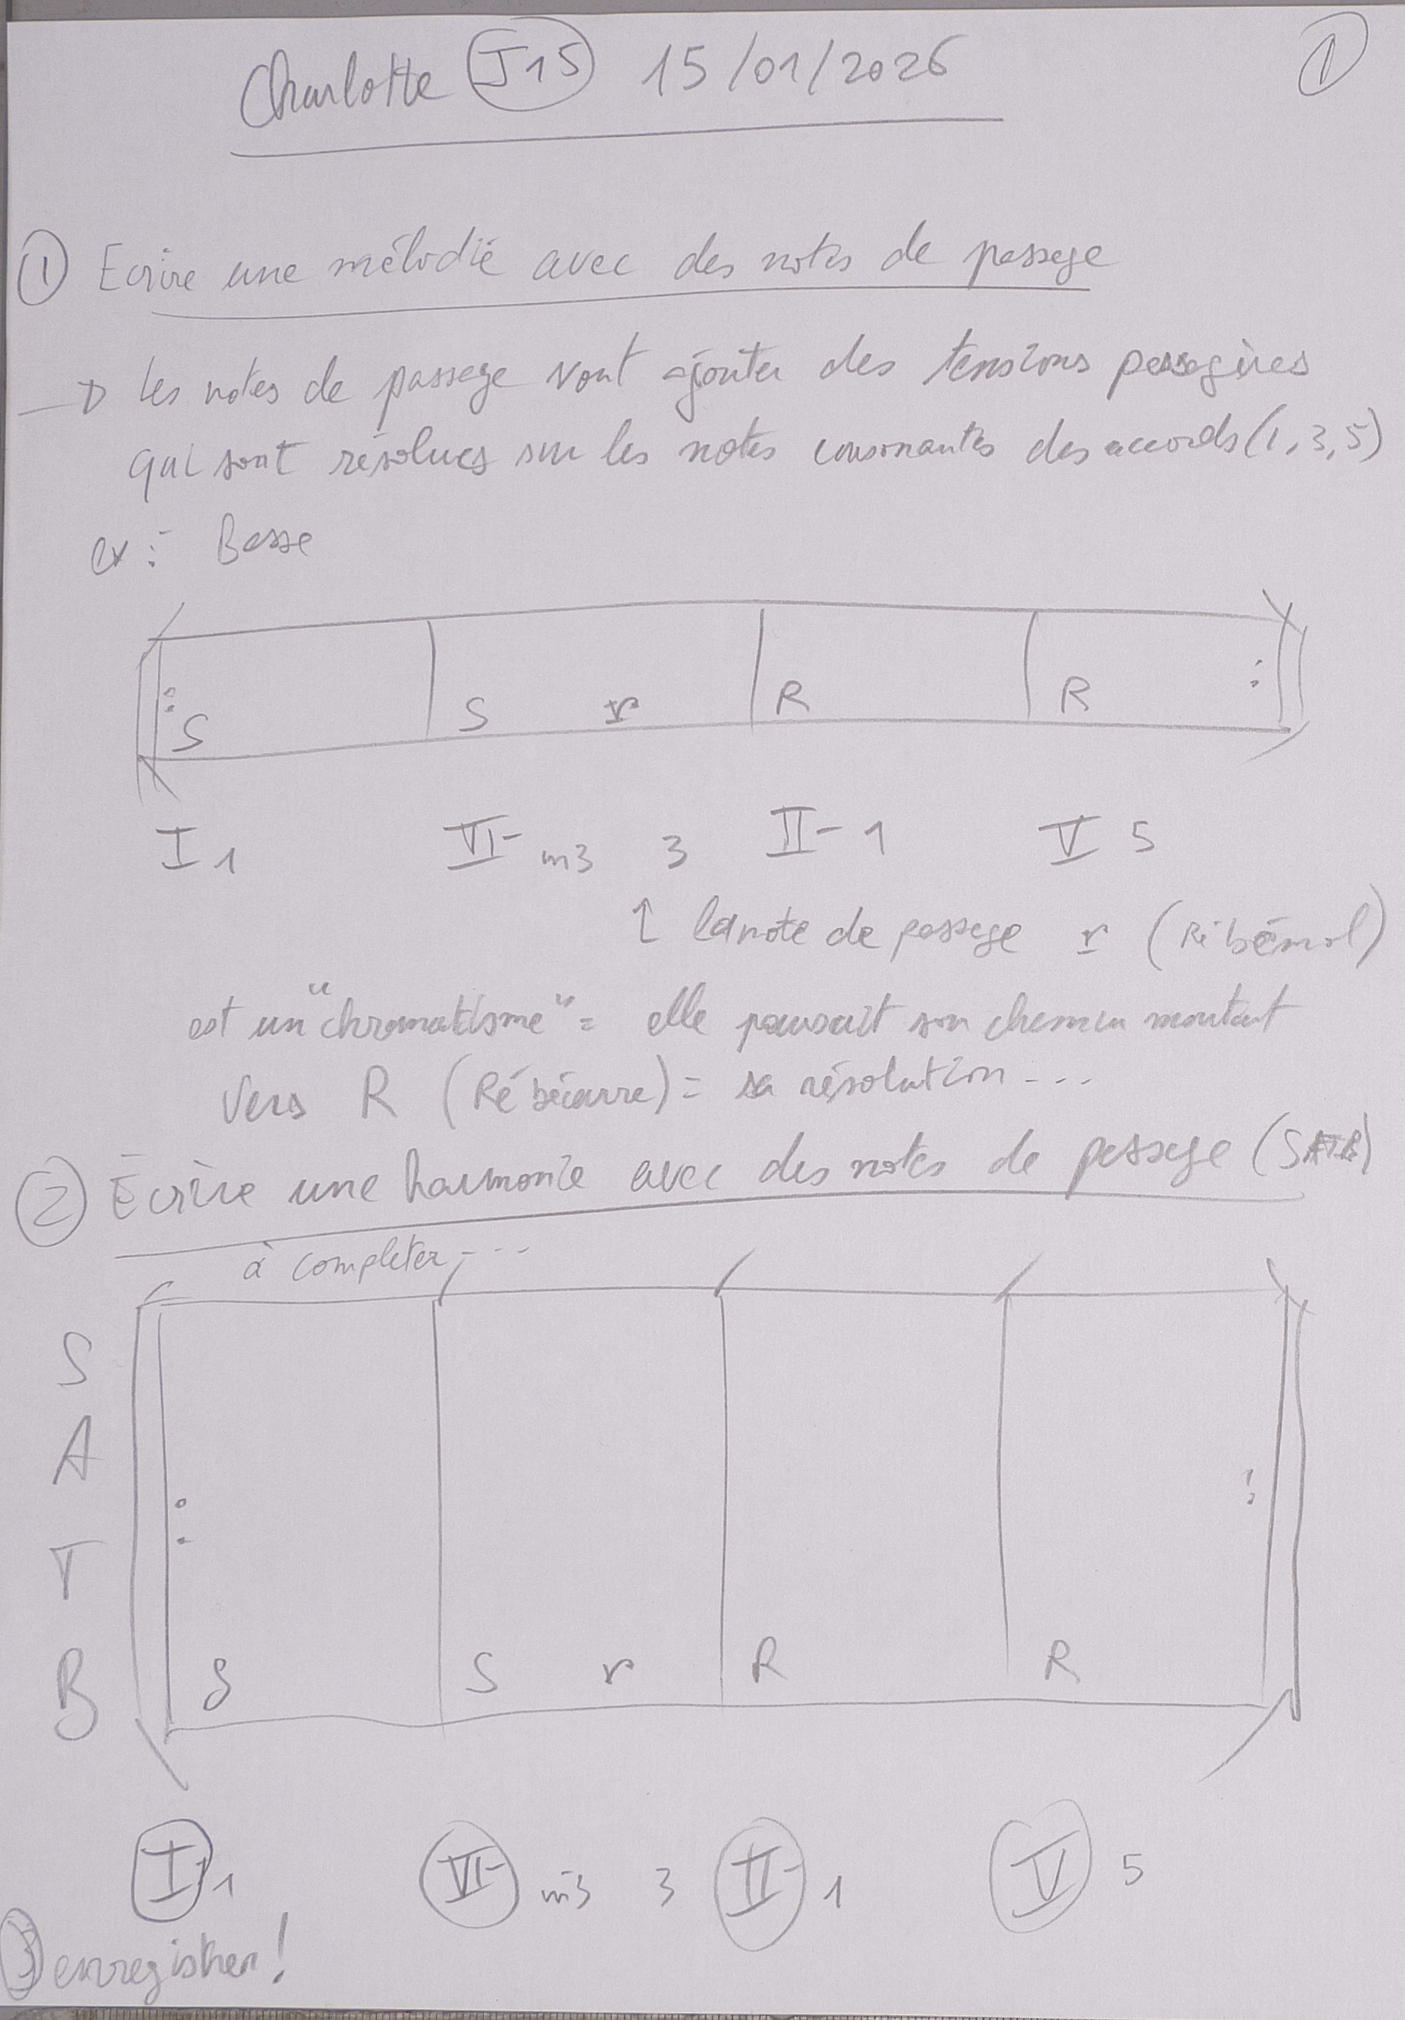 Charlotte J15 15/01/2026
1
1 Ecrire une mélodie avec des notes de passage
→ les notes de passage vont ajouter des tensions passagères
qui sont résolues sur les notes consonantes des accords (1, 3, 5)
ex : Basse
: S S r R R :
I 1 VI- m3 3 II- 1 V 5
↑ la note de passage r (Ré bémol)
est un "chromatisme" = elle poursuit son chemin montant
vers R (Ré bécarre) = sa résolution...
2 Écrire une harmonie avec des notes de passage (SATB)
à completer...
S
A
T
B : S S r R R :
I 1 VI- m3 3 II- 1 V 5
3 enregistrer !